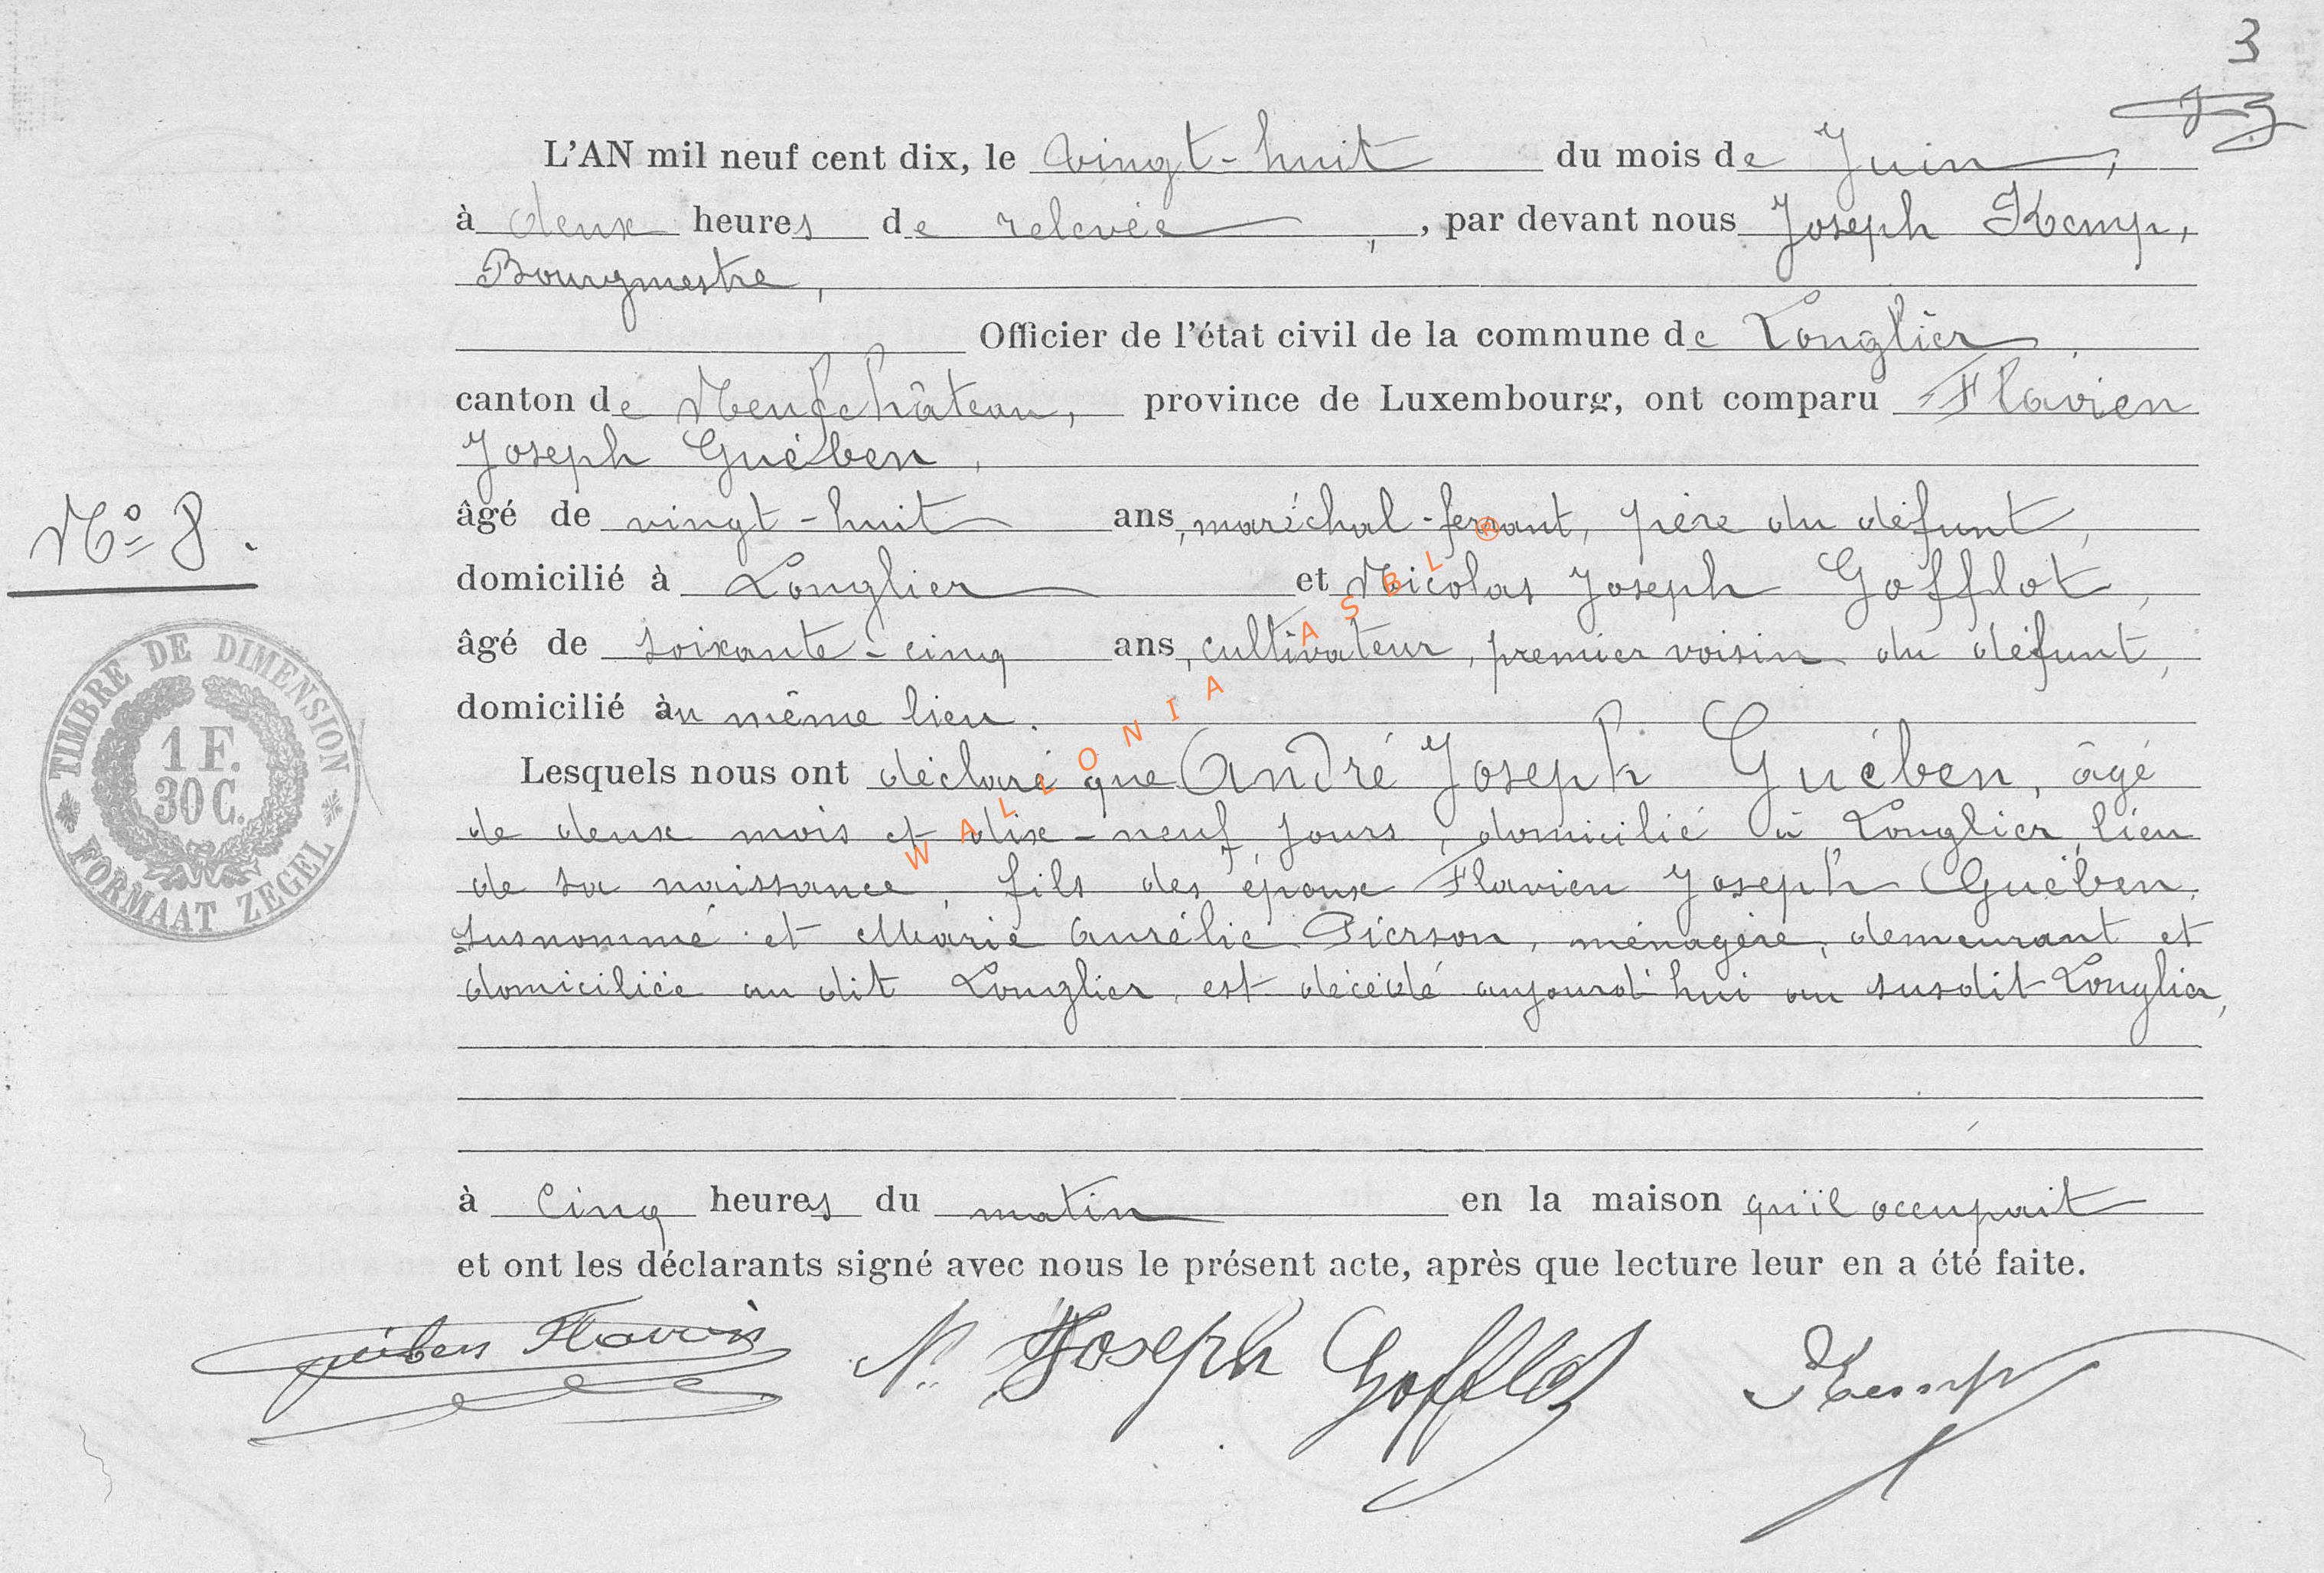 3
L'AN mil neuf cent dix, le vingt-huit du mois de Juin,
à deux heures de relevée, , par devant nous Joseph Kemp,
Bourgmestre,
Officier de l'état civil de la commune de Longlier,
canton de Neufchâteau, province de Luxembourg, ont comparu Flavien
Joseph Guében,
âgé de vingt-huit ans, maréchal-ferrant, père du défunt,
domicilié à Longlier et Nicolas Joseph Gofflot,
âgé de soixante-cinq ans, cultivateur, premier voisin du défunt,
domicilié au même lieu.
Lesquels nous ont déclaré que André Joseph Guében, âgé
de deux mois et dix-neuf jours, domicilié à Longlier, lieu
de sa naissance, fils des époux Flavien Joseph Guében,
susnommé et Marie Aurélie Pierson, ménagère, demeurant et
domiciliée au dit Longlier, est décédé aujourd'hui au susdit Longlier,
à cinq heures du matin en la maison qu'il occupait
et ont les déclarants signé avec nous le présent acte, après que lecture leur en a été faite.
Guében Flavien N. Joseph Gofflot Kemp
No 8.
TIMBRE DE DIMENSION
1 F.
30 C.
FORMAAT ZEGEL
WALLONIA ASBL ®